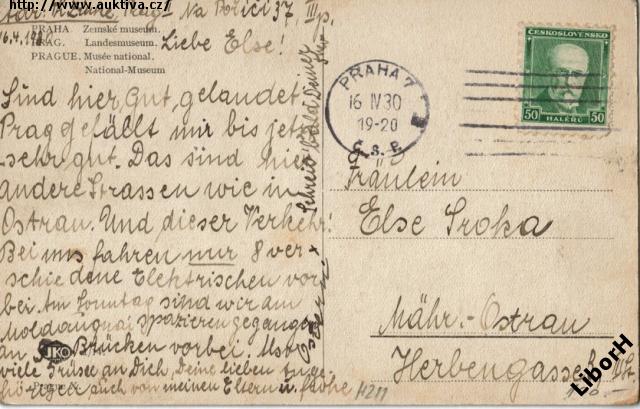 http://www.auktiva.cz/
Na Poříčí 37. III p.
16.4.1930
PRAHA. Zemské museum.
PRAG. Landesmuseum.
PRAGUE. Musée national.
National-Museum
Liebe Else!
Sind hier gut gelandet
Prag gefällt mir bis jetzt
sehr gut. Das sind hier
andere Strassen wie in
Ostrau. Und dieser Verkehr!
Bei uns fahren nur 8 ver-
schiedene Elektrischen vor-
bei. Am Sonntag sind wir am
Moldauquai spazieren gegangen
an Brücken vorbei. Also
viele Grüsse an Dich, Deine lieben Ange-
hörigen auch von meinen Eltern u.
Schreib bald Deiner
Ostern
PRAHA 7
16 IV 30
19-20
Č.S.P.
ČESKOSLOVENSKO
50 HALÉŘŮ 50
Fräulein
Else Sroka
Mähr.-Ostrau
Herbengasse
IKO
H211
LiborH